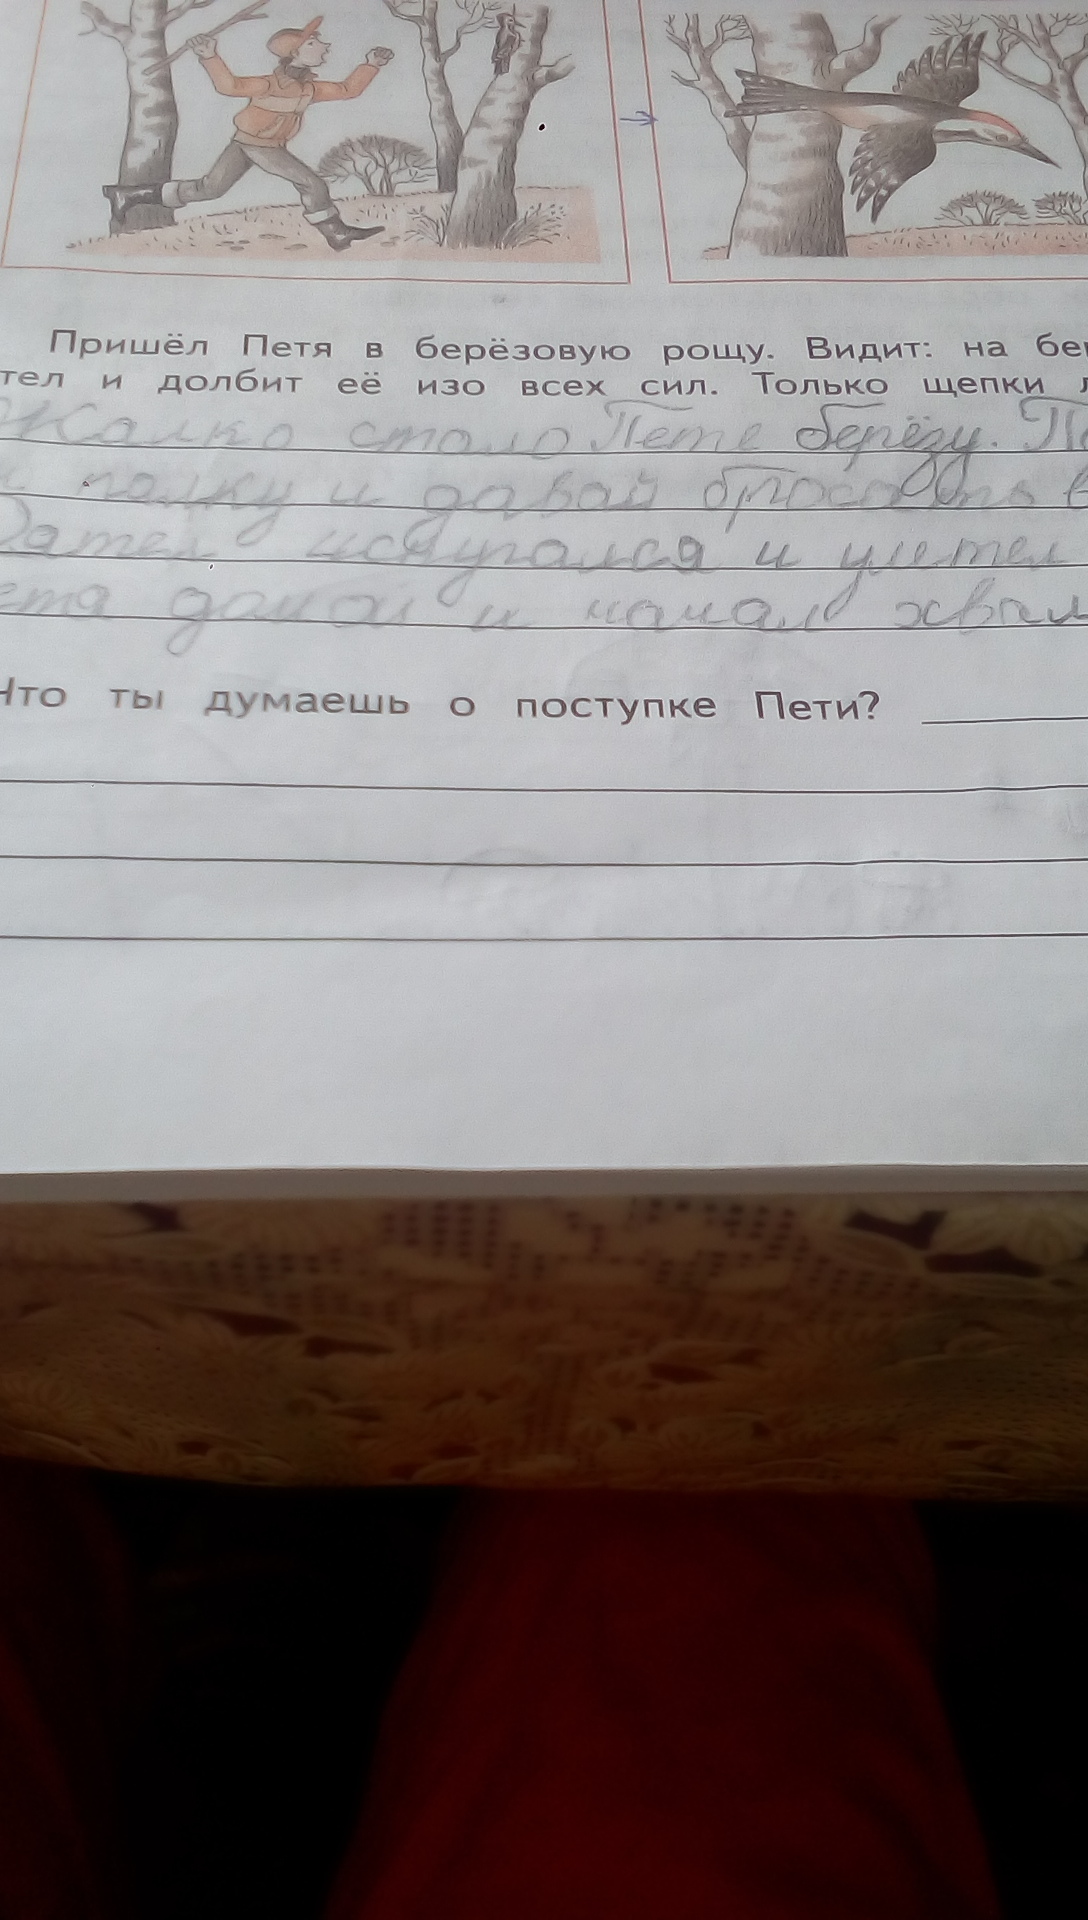 Пришёл Петя в берёзовую рощу. Видит: на бе
тел и долбит её изо всех сил. Только щепки л
Жалко стало Пете берёзу. П
палку и давай бросать в
Дятел испугался и улетел
етя домой и начал хвал
Что ты думаешь о поступке Пети?